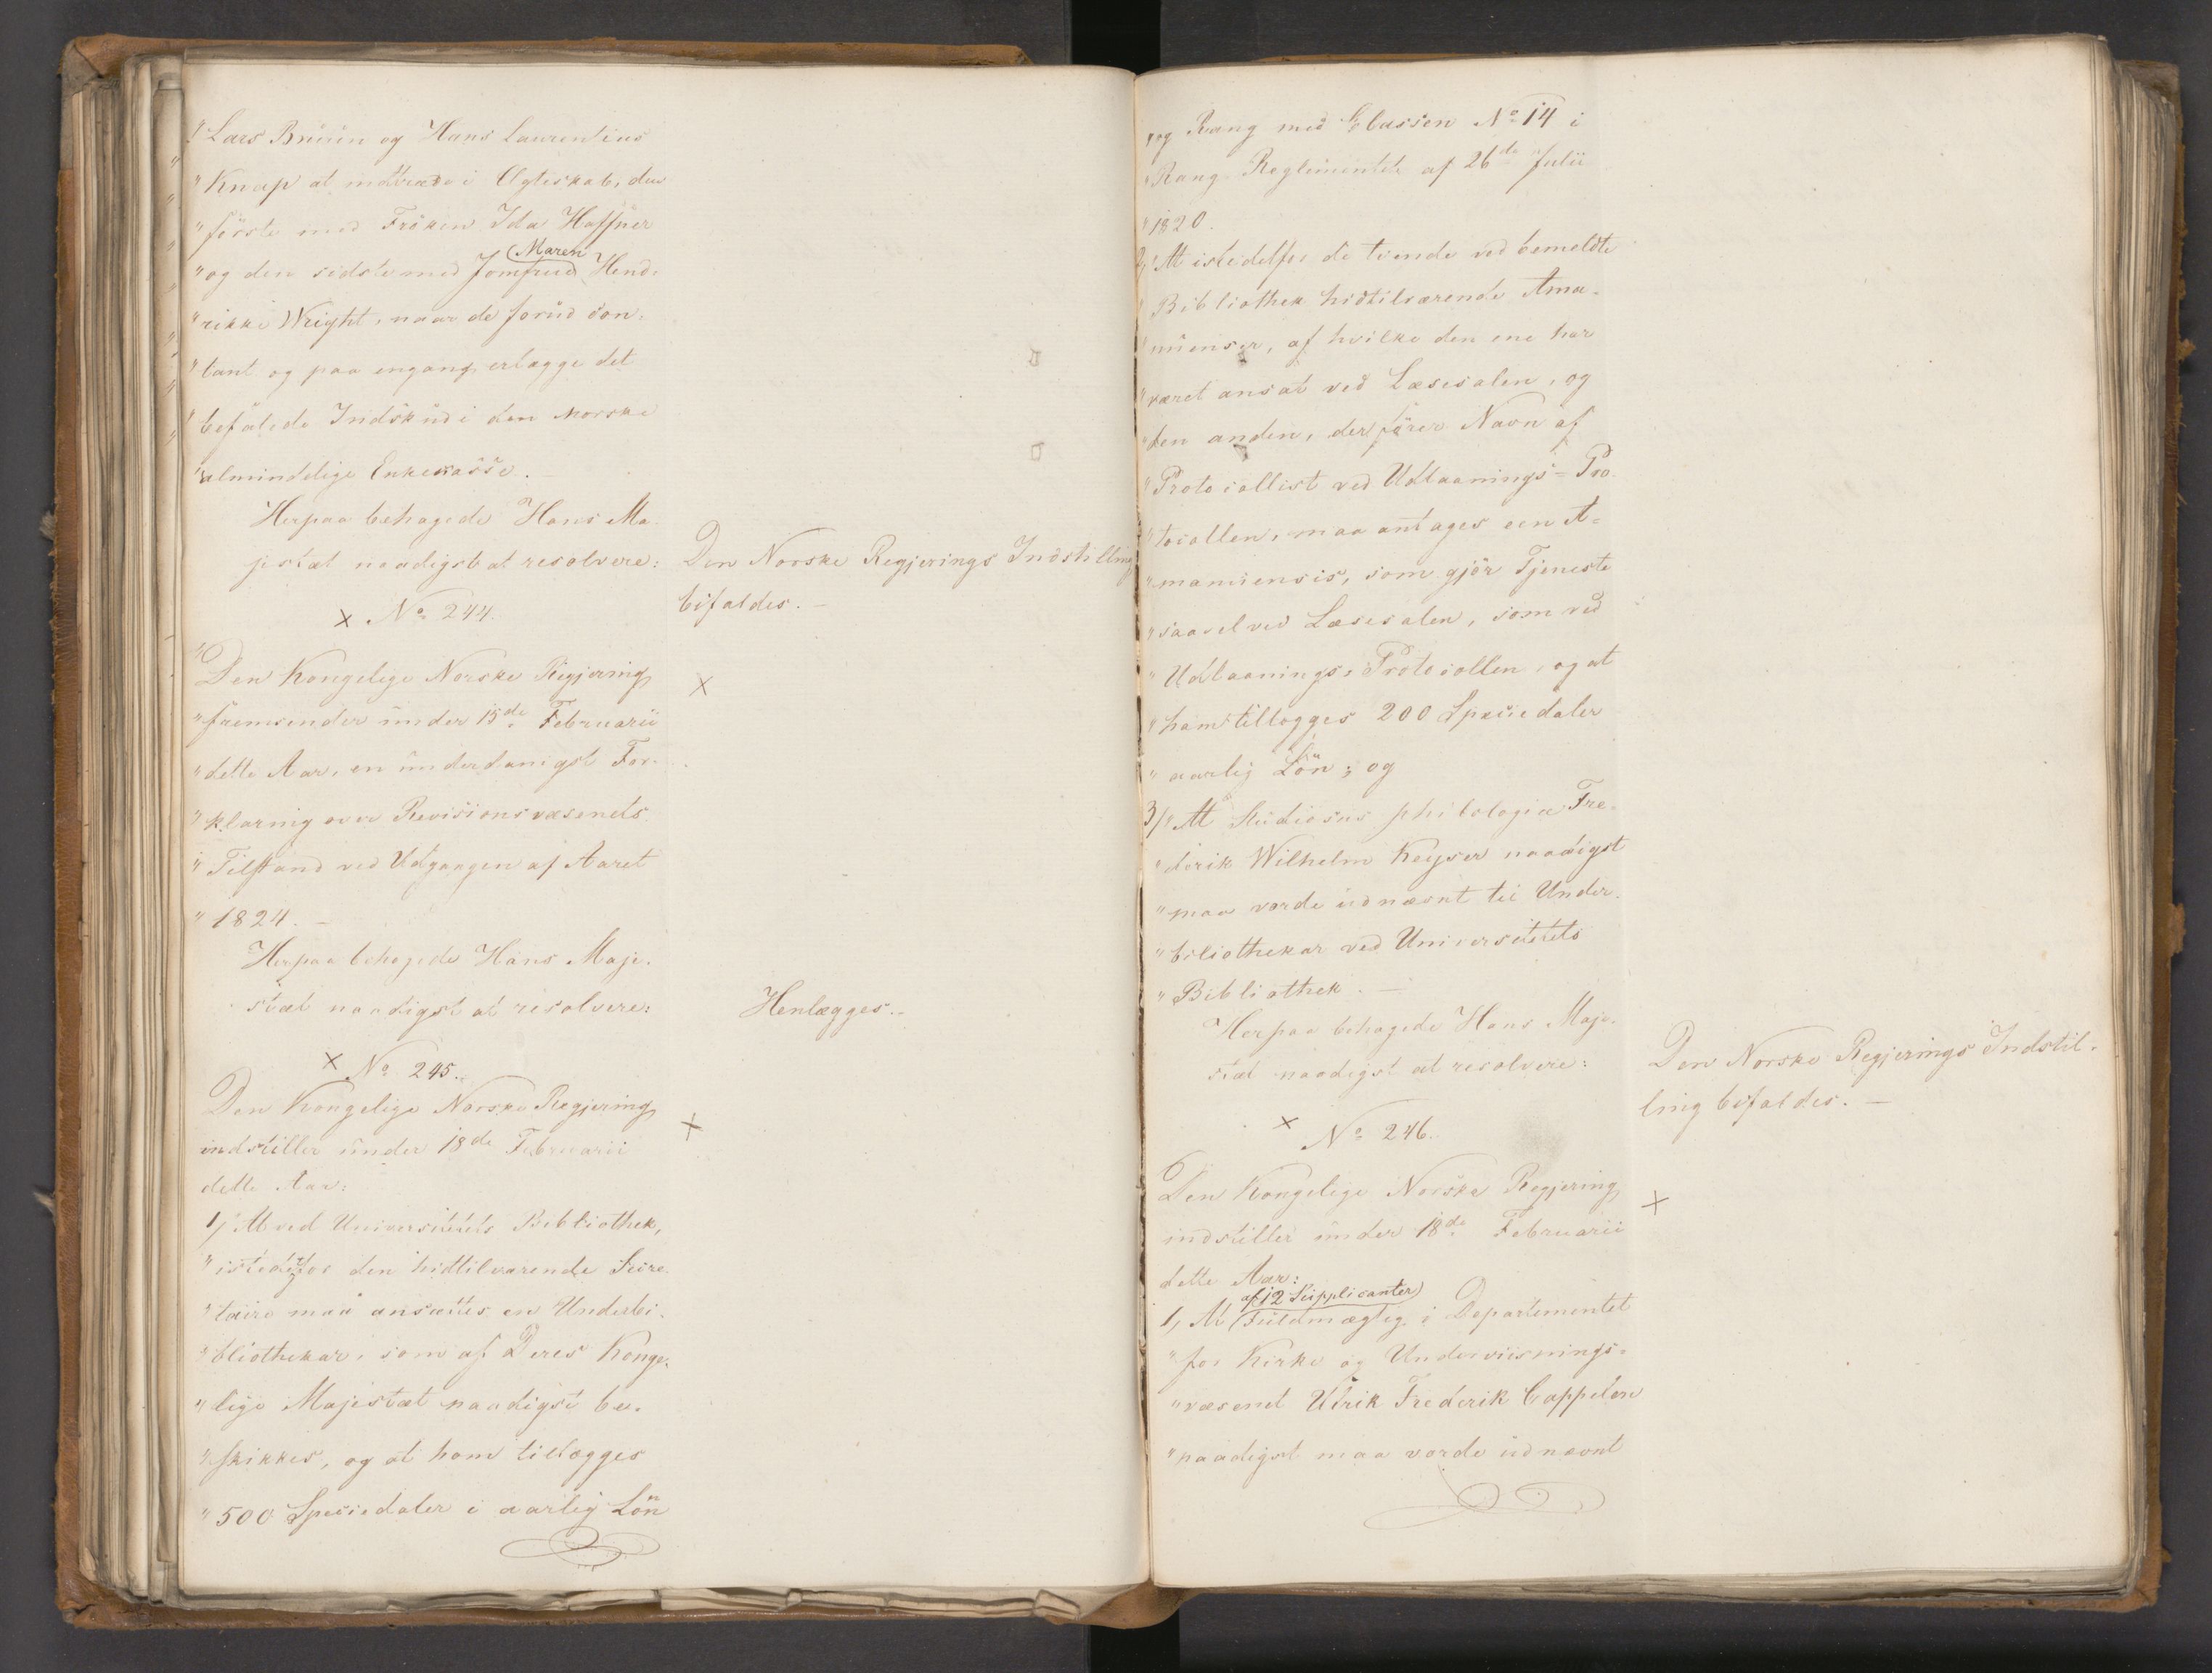 " Lars Bruun og Hans Laurentius
" Knap at indtræde i Ægteskab, den
" første med Frøken Ida Haffner
" og den sidste med Jomfrue Maren Hend-
" rikke Wright, naar de forud con-
" tant og paa engang erlægge det
" befalede Indskud i den Norske
" almindelige Enkekasse.
Herpaa behagede Hans Ma-
jestæt naadigst at resolvere:
Den Norske Regjerings Indstilling
bifaldes. —
× No 244.
" Den Kongelige Norske Regjering
×
" fremsender under 15de Februarii
" dette Aar, en underdanigst For-
" klaring over Revisionsvæsenets
" Tilstand ved Udgangen af Aaret
" 1824. —
Herpaa behagede Hans Maje-
stæt naadigst at resolvere:
Henlægges.-
× No 245.
Den Kongelige Norske Regjering
×
indstiller under 18de Februarii
dette Aar:
1, "At ved Universitetets Bibliothek,
" istedetfor den hidtilværende Secre-
" taire maa ansættes en Underbi-
" bliothekar, som af Deres Konge-
" lige Majestæt naadigst be-
" skikkes, og at ham tillægges
" 500 Speciedaler i aarlig Lön
" og Rang med Classen No 14 i
" Rang-Reglementet af 26de Julii
" 1820.
2, "At istedetfor de tvende ved bemeldte
" Bibliothek hidtilværende Ama-
" nuenser, af hvilke den ene har
" været ansat ved Læsesalen, og
" den anden, der förer Navn af
" Protocollist ved Udlaanings-Pro-
" tocollen, maa antages een A-
" manuensis, som gjör Tjeneste
" saavel ved Læsesalen, som ved
" Udlaanings-Protocollen, og at
" ham tillægges 200 Speciedaler
" aarlig Lön; og
3, "At Studiosus philologiæ Fre-
" derik Wilhelm Keyser naadigst
" maa vorde udnævnt til Under-
" bibliothekar ved Universitetets
" Bibliothek. —
Herpaa behagede Hans Maje-
stæt naadigst at resolvere:
Den Norske Regjerings Indstil-
ling bifaldes. —
× No 246.
Den Kongelige Norske Regjering
×
indstiller under 18de Februarii
dette Aar:
af 12 Supplicanter
1, At Fuldmægtig i Departementet
" for Kirke og Underviisnings-
" væsenet Ulrik Frederik Cappelen
" naadigst maa vorde udnævnt